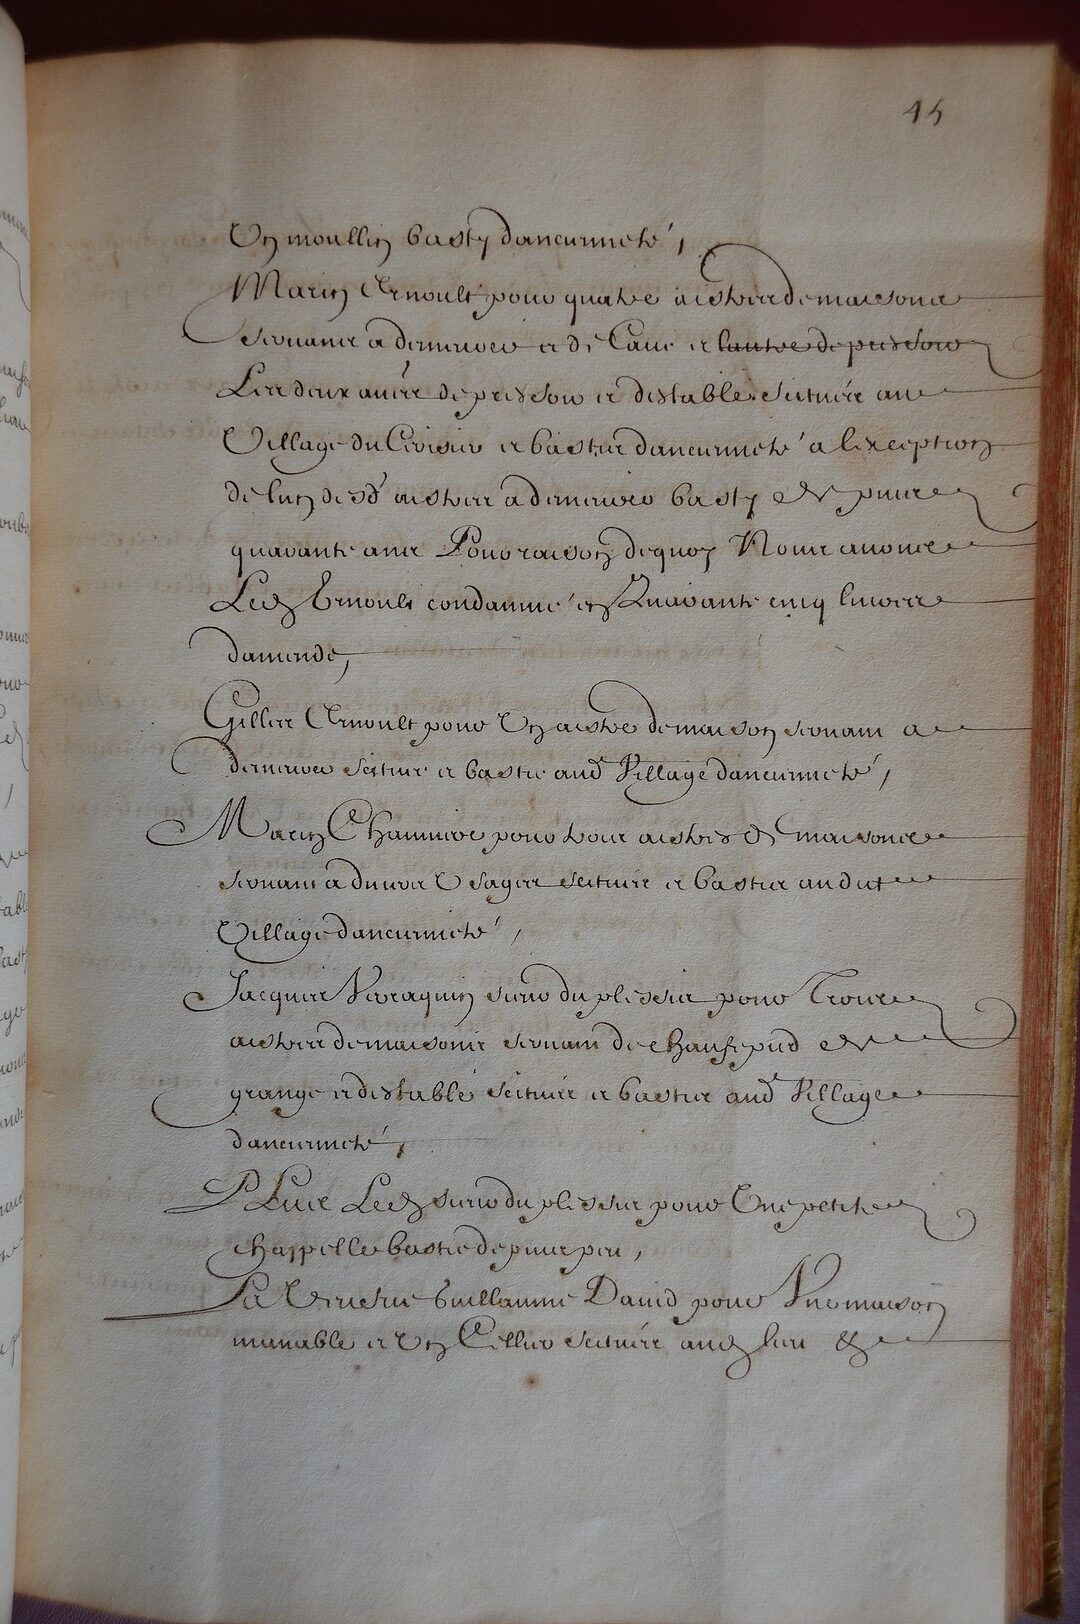 15
Un moullin basty dancienneté,
Marin Ernoult pour quatre aistres de maisons
servants a demeurer et de Cave et lautre de pressoir
Les deux aues de pressoir et destable scituées au
Village du Croisier et basties danciennete a lexception
de lun desd aistres a demeurer basty depuis
quarante ans Pour raison dequoy Nous avons
Led Ernoult condamné en Quarante cinq livres
damende,
Gilles Ernoult pour Un aistre de maison servant a
demeurer scitué et bastie aud Village danciennete,
Marin Chauvire pour trois aistres de maisons
servants a divers Usages scituées et basties audit
Village danciennete,
Jacques Verraquin sieur du plessis pour Trois
aistres de maisons servant de chauffepied de
grange et destable scituées et basties aud Village
danciennete,
Plus Led sieur du plessis pour Une petite
chappelle bastie depuis peu,
La Veufve Guillaume David pour Une maison
manable et Un Cellier scituées aud lieu &